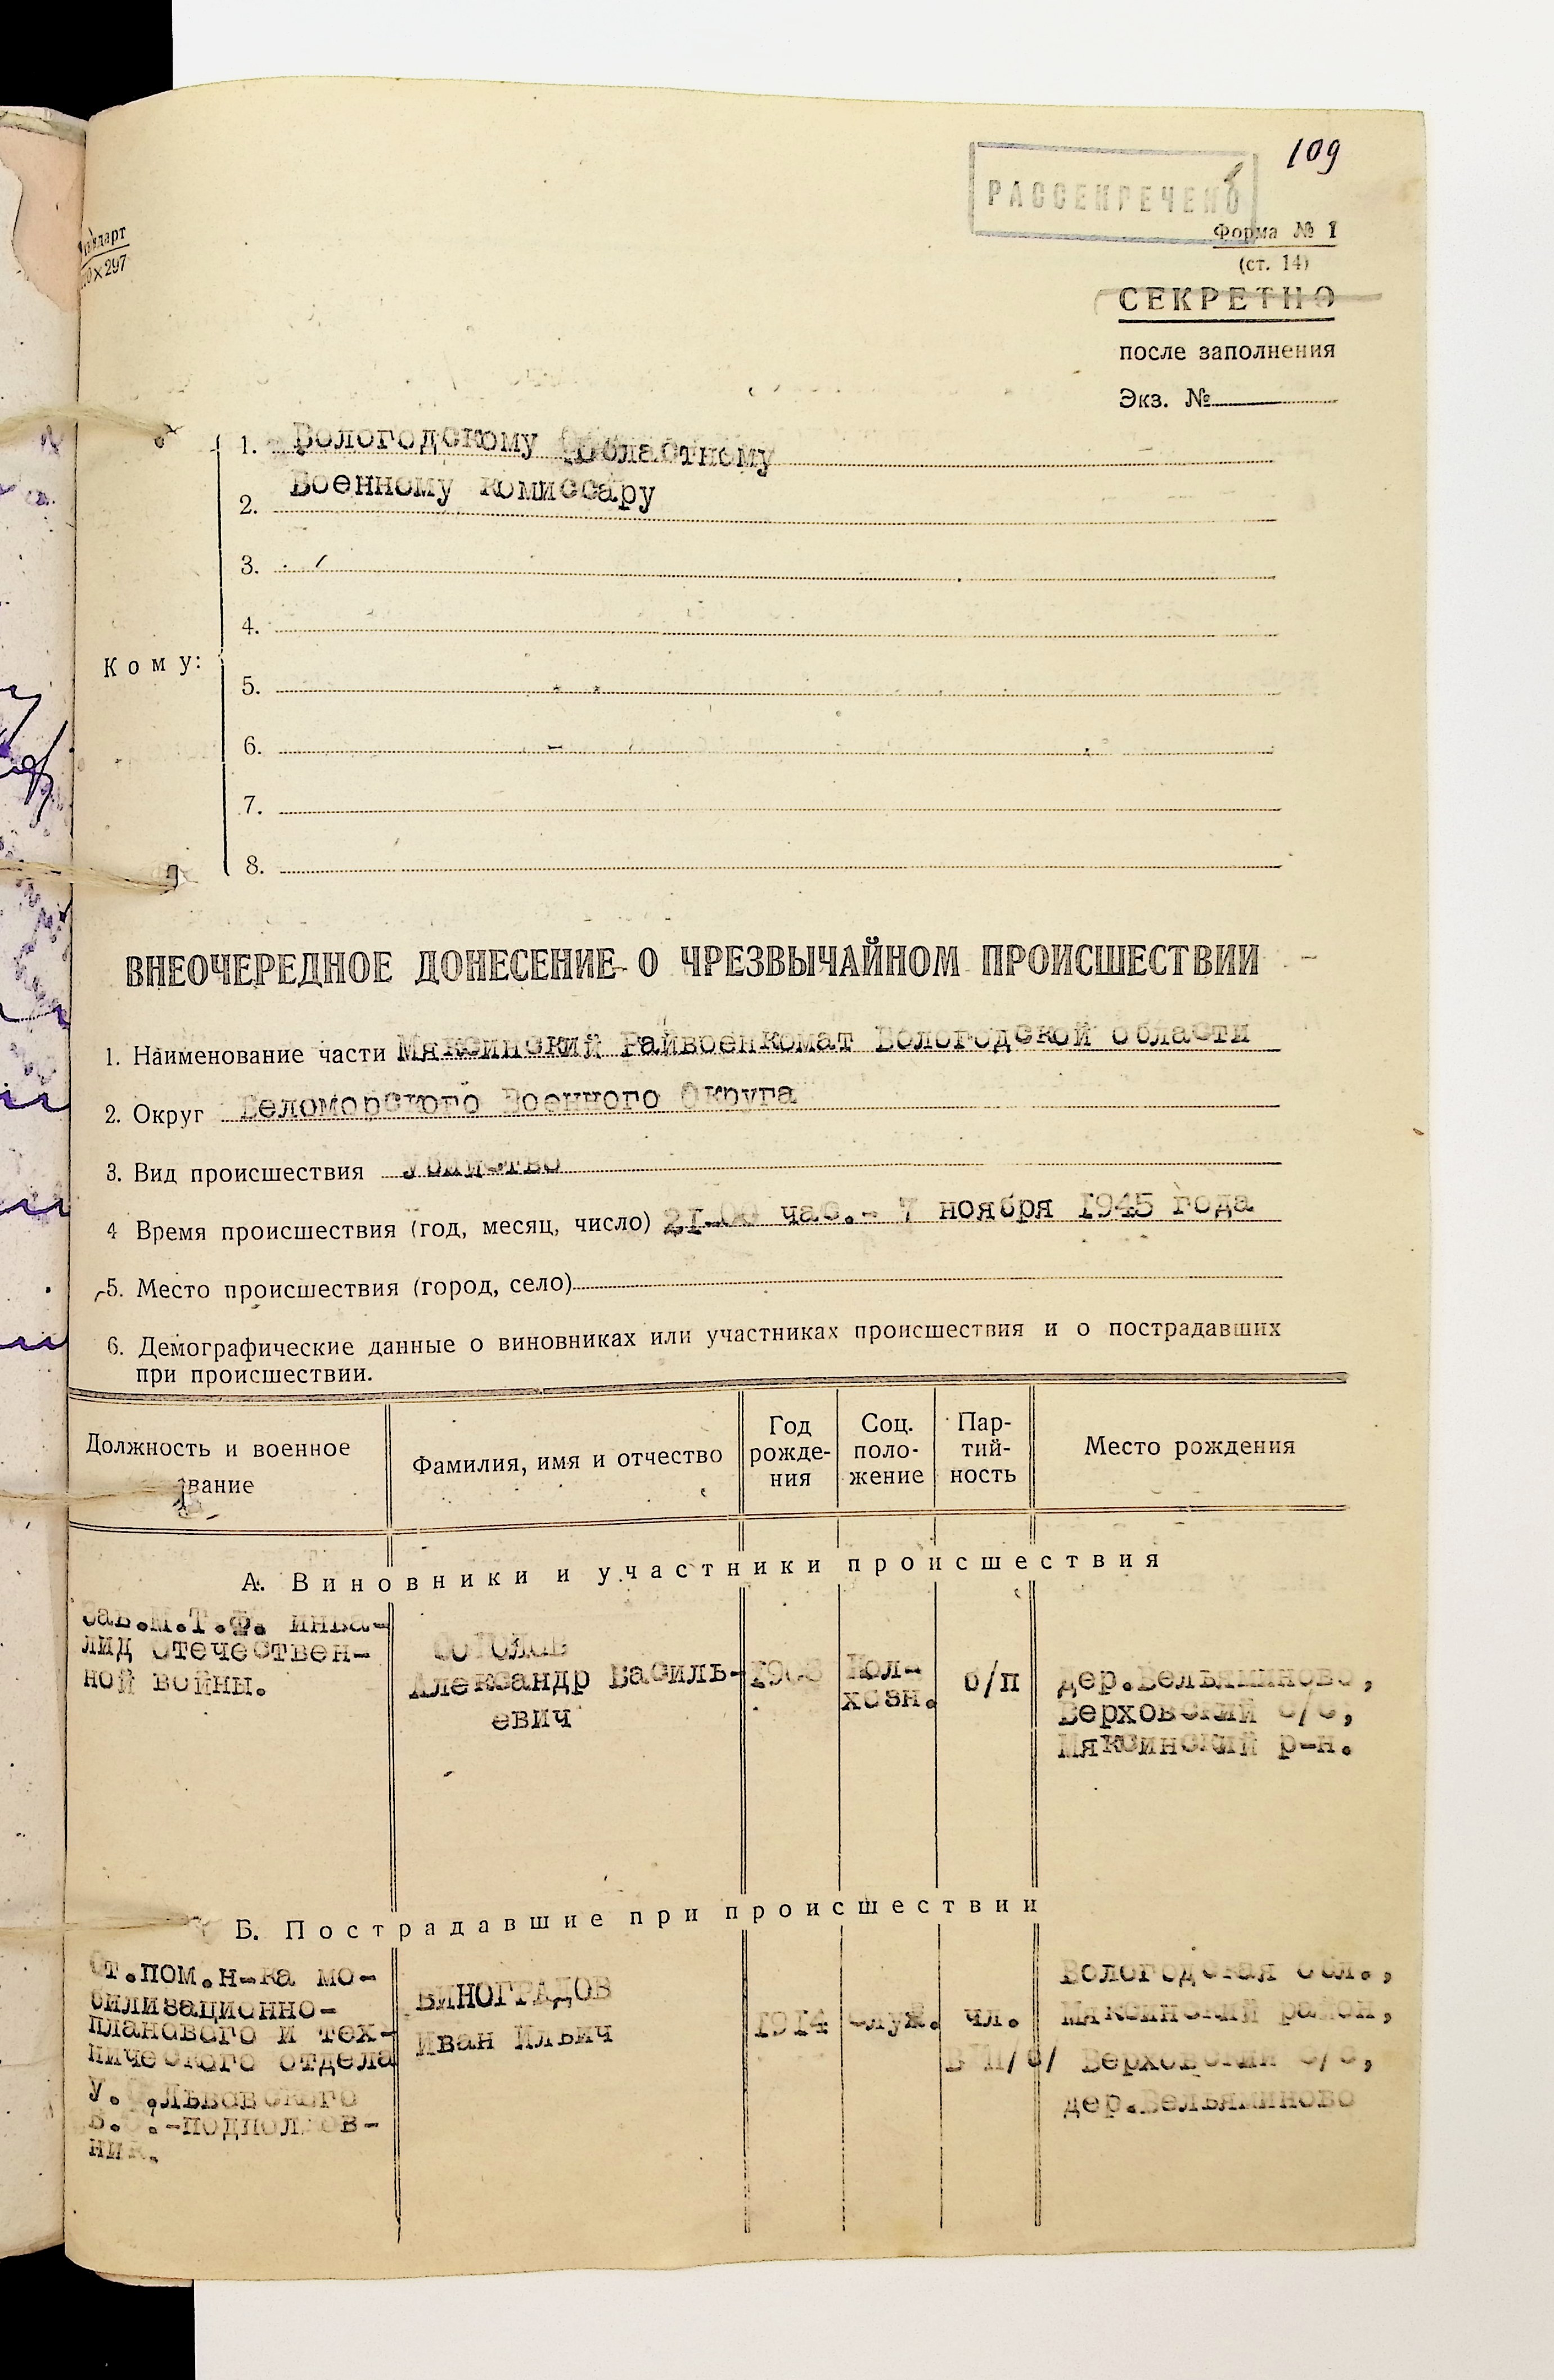 109
РАССЕКРЕЧЕНО
Форма № 1
(ст. 14)
СЕКРЕТНО
после заполнения
Экз. №
Кому:
1. Вологодскому Областному
2. Военному комиссару
3.
4.
5.
6.
7.
8.
ВНЕОЧЕРЕДНОЕ ДОНЕСЕНИЕ О ЧРЕЗВЫЧАЙНОМ ПРОИСШЕСТВИИ
1. Наименование части Мяксинский Райвоенкомат Вологодской области
2. Округ Беломорского Военного Округа
3. Вид происшествия Убийство
4 Время происшествия (год, месяц, число) 21-00 час.- 7 ноября 1945 года
5. Место происшествия (город, село)
6. Демографические данные о виновниках или участниках происшествия и о пострадавших
при происшествии.
Должность и военное
звание
Фамилия, имя и отчество
Год
рожде-
ния
Соц.
поло-
жение
Пар-
тий-
ность
Место рождения
А. Виновники и участники происшествия
Зав.М.Т.Ф. инва-
лид отечествен-
ной войны.
Александр Василь-
евич
1908
Кол-
хозн.
б/п
дер.Вельяминово,
Верховский с/с,
Мяксинский р-н.
Б. Пострадавшие при происшествии
Ст.пом.н-ка мо-
билизационно-
планового и тех-
нического отдела
Львовского
В.О.-подполков-
ник.
ВИНОГРАДОВ
Иван Ильич
1914
служ.
чл.
ВКП/б/
Вологодская обл.,
Мяксинский район,
Верховский с/с,
дер.Вельяминово